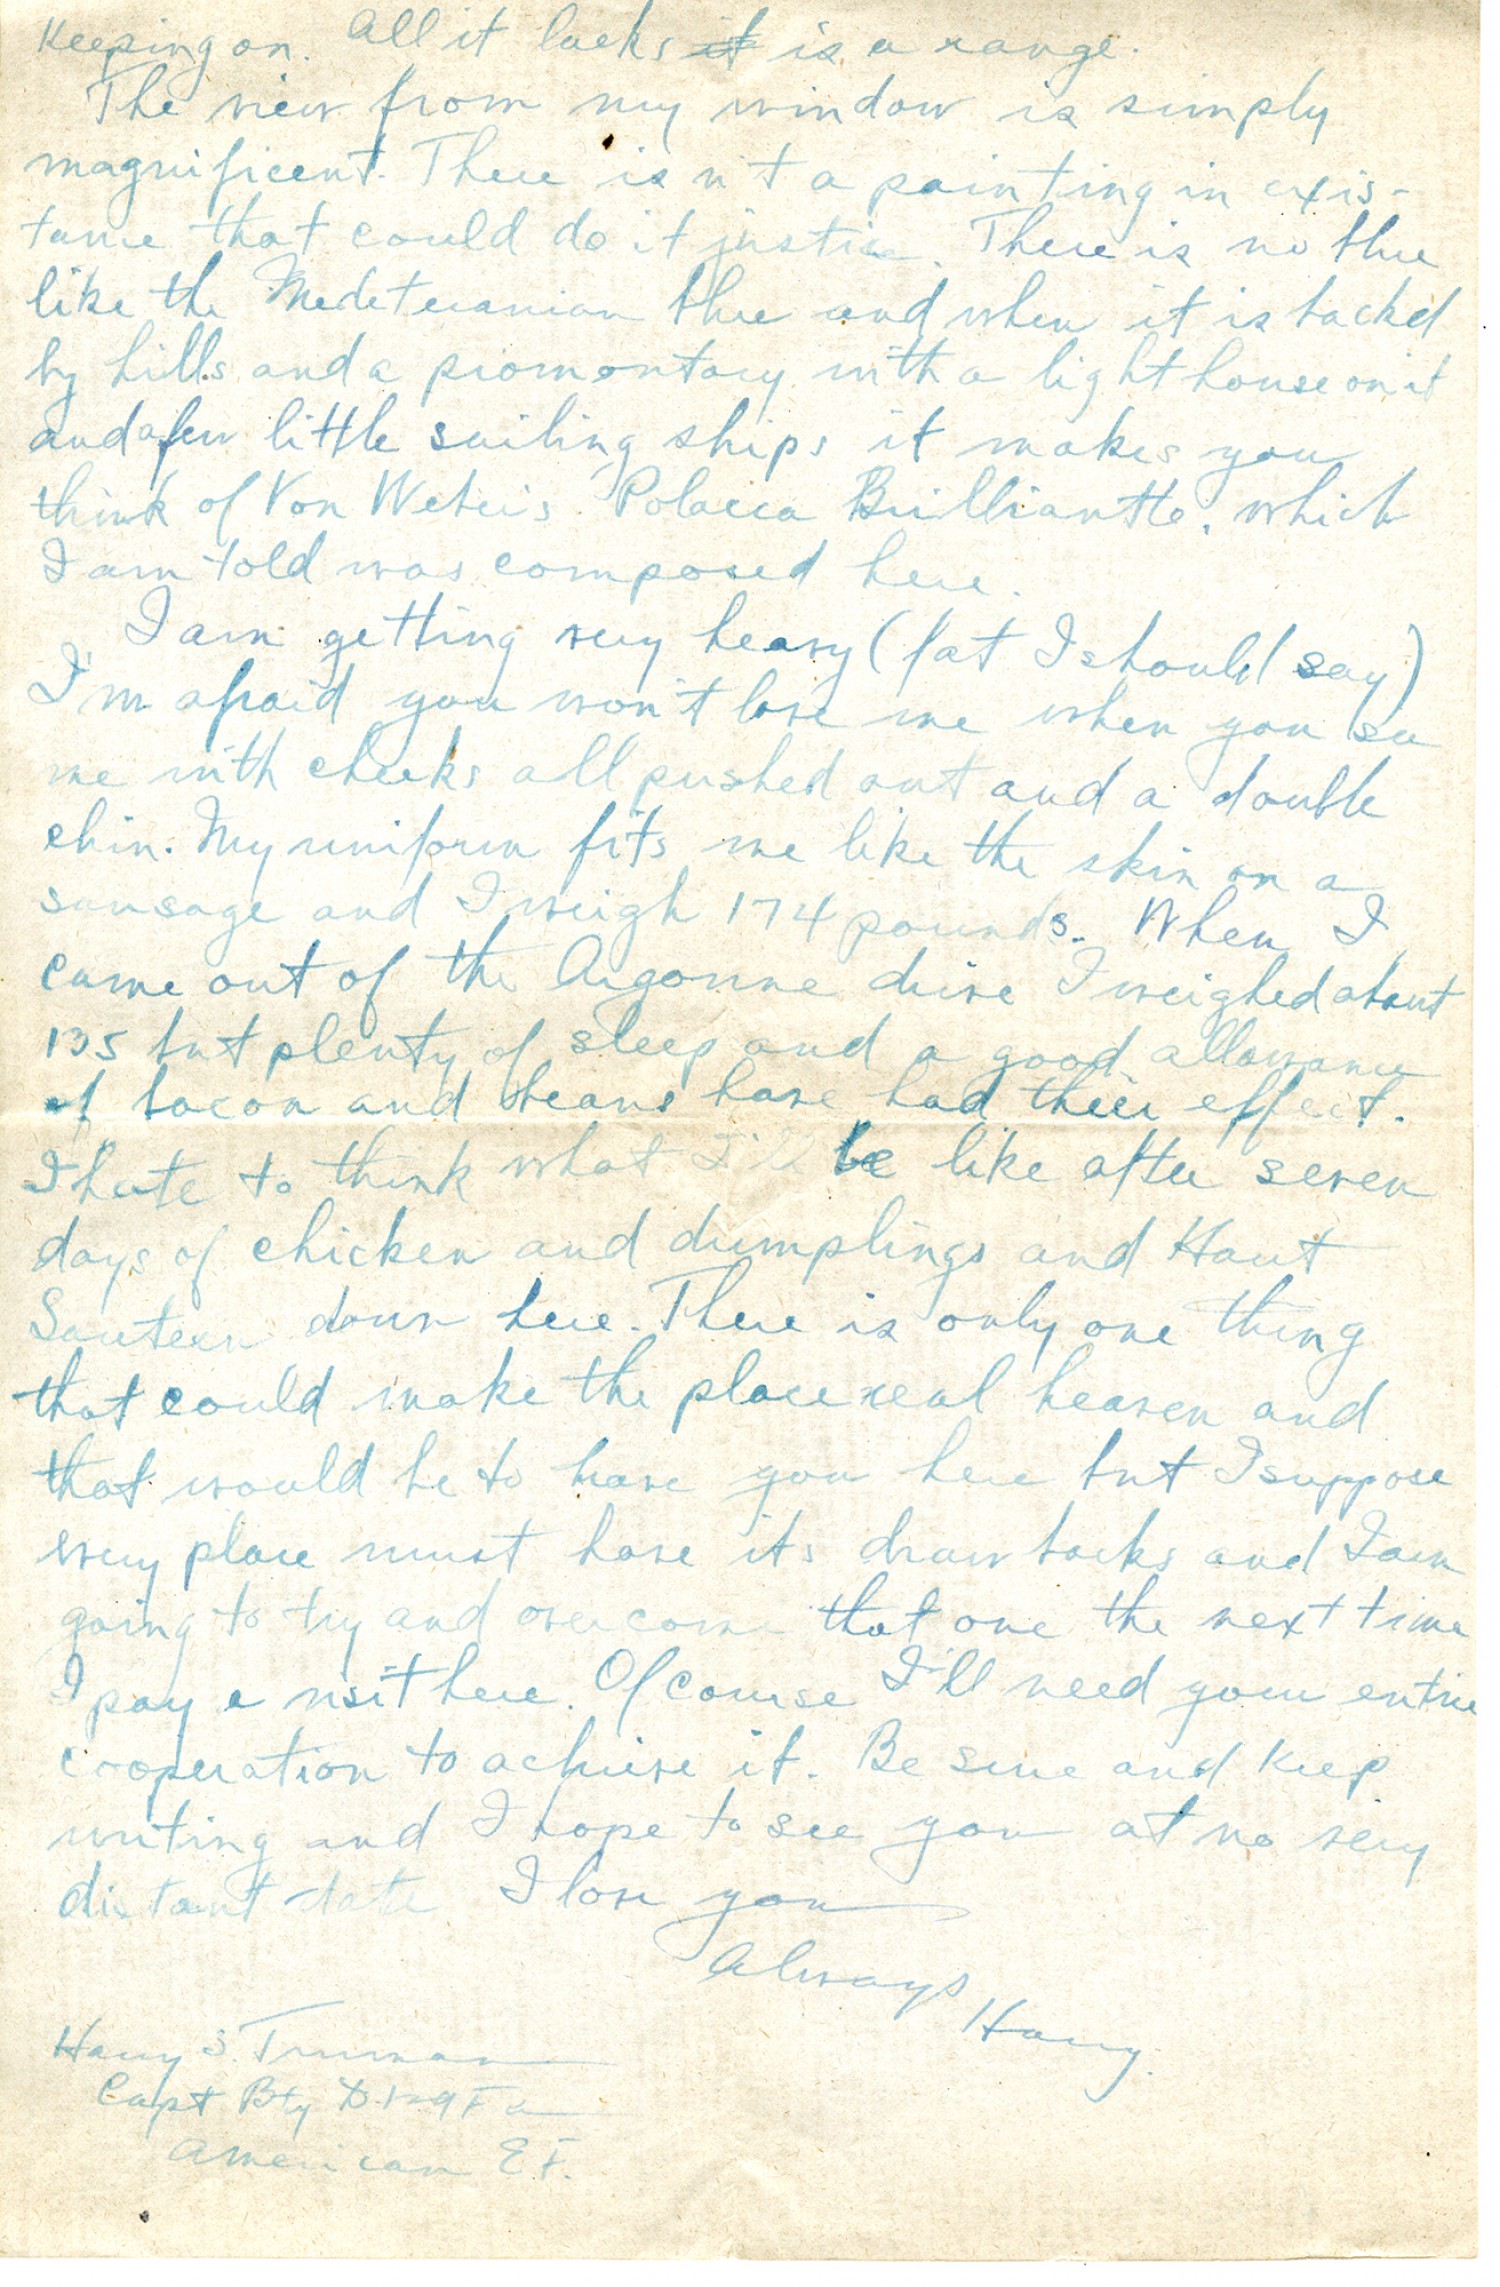 Keeping on. All it lacks it is a range.
The view from my window is simply
magnificent. There is n't a painting in exis-
tance that could do it justice. There is no blue
like the Mediteranian blue and when it is backd
by hills and a promontory with a light house on it
and a few little sailing ships it makes you
think of Von Weber's Polacca Brilliantte, which
I am told was composed here.
I am getting very heavy (fat I should say)
I'm afraid you won't love me when you see
me with cheeks all pushed out and a double
chin. My uniform fits me like the skin on a
sausage and I weigh 174 pounds. When I
came out of the Argonne drive I weighed about
135 but plenty of sleep and a good allowance
of bacon and beans have had their effect.
I hate to think what I'll be like after seven
days of chicken and dumplings and Haut
Sautern down here. There is only one thing
that could make the place real heaven and
that would be to have you here but I suppose
every place must have its draw backs and I am
going to try and overcome that one the next time
I pay a visit here. Of course I'll need your entire
cooperation to achieve it. Be sure and keep
writing and I hope to see you at no very
distant date I love you
Always
Harry.
Harry S. Truman
Capt Bty D 129 F a
American E F.